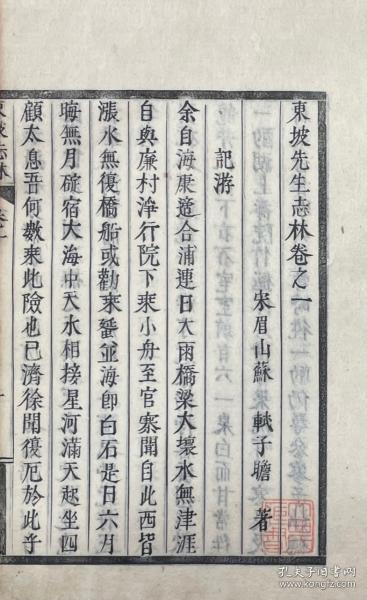 東坡先生志林卷之一
宋眉山蘇軾子瞻著
記游
余自海康適合浦連日大雨橋梁大壞水無津涯
自興廉村淨行院下乘小舟至官寨聞自此西皆
漲水無復橋船或勸乘蜑並海即白石是日六月
晦無月碇宿大海中天水相接星河滿天起坐四
顧太息吾何數乘此險也已濟徐聞復厄於此乎
東坡志林
卷一
孔夫子旧书网